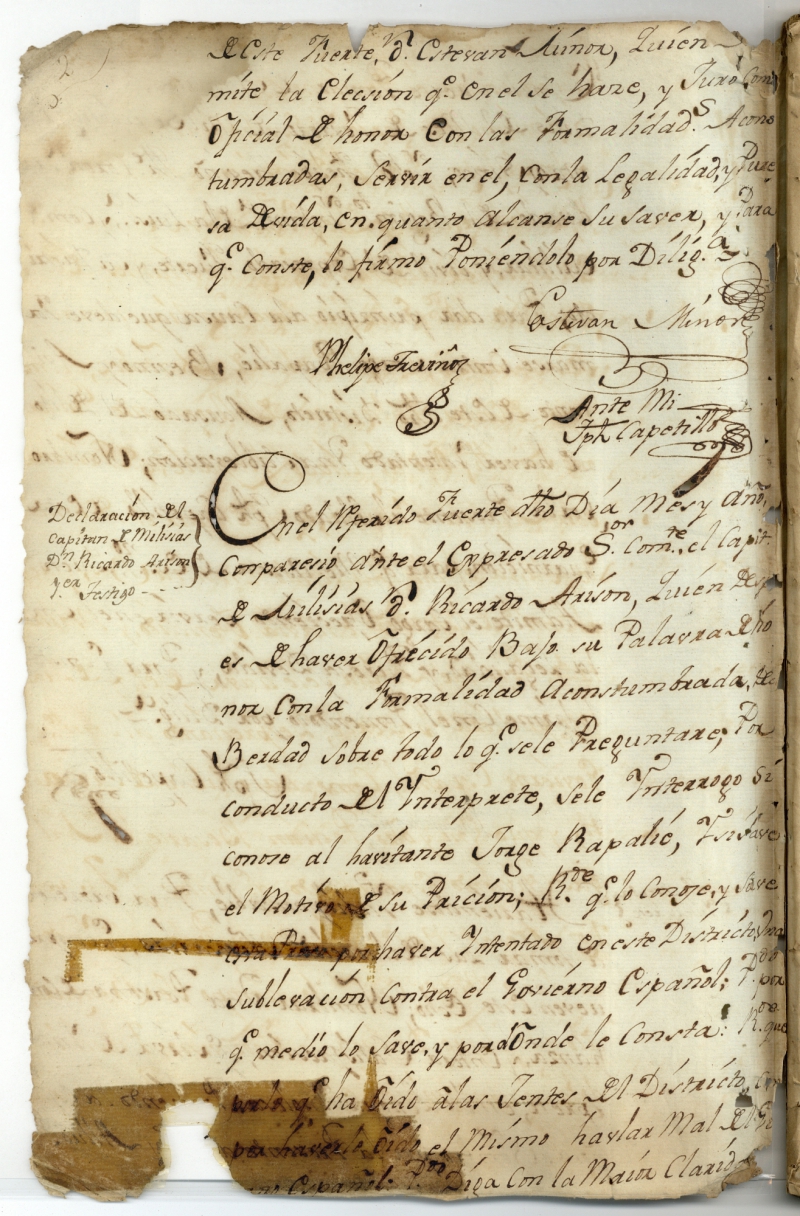 de Este Fuerte, Dn. Estevan Minor, Quien
mite la Elecsión qe. en el se haze, y Juró Com
Oficial de honor Con las Formalidads. Acons
tumbradas, Servir en el, con la Legalidad, y Pure
sa devida, en quanto alcanse Su Saver, y Para
qe. Conste, lo firmó Poniéndolo por Dilig.a
Estevan Minor
Phelipe Treviño
Ante Mi
Jph Capetillo
Declaración del
Capitan de Milisias
Dn. Ricardo Arison
1.er Testigo
En el Referido Fuerte dho Día Mes y año,
Conparesió ante el Expresado S.or Com.te el Capit.
de Milisias Dn. Ricardo Arison, Quién desp
es de haver Ofrécido Bajo su Palavra de ho
nor Con la Formalidad Aconstumbrada, de
Berdad sobre todo lo qe. sele Preguntare; Por
conducto del Ynterprete, sele Ynterrogo Si
conose al havitante Jorge Rapalié, Y si Save
el Motivo de Su Prición; R.de qe. lo Conose, y Save
por haver Yntentado en este Districto, Una
sublevación Contra el Goviérno Español; P.do por
qe. medio lo Save, y por dOnde le Consta: R.de que
por lo qe. ha Oido à las Jentes del Districto, Co
por haverle Oido el Mismo havlar Mal del Go
no Español: P.do Diga Con la Maior Clarid